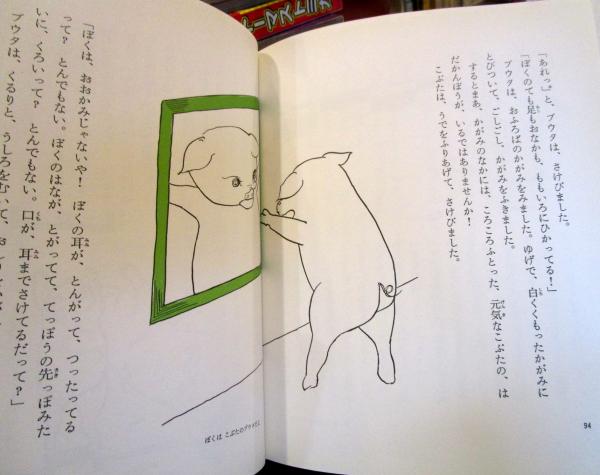 「あれっ」と、ブウタは、さけびました。
「ぼくのても足もおなかも、ももいろにひかってる!」
ブウタは、おふろばのかがみをみました。ゆげで、白くくもったかがみに
とびついて、ごしごし、かがみをふきました。
するとまあ、かがみのなかには、ころころふとった、元気なこぶたの、は
だかんぼうが、いるではありませんか!
こぶたは、うでをふりあげて、さけびました。
94
「ぼくは、おおかみじゃないや! ぼくの耳が、とんがって、つったってる
って? とんでもない。ぼくのはなが、とがってて、てっぽうの先っぽみた
いに、くろいって? とんでもない。口が、耳までさけてるだって?」
ブウタは、くるりと、うしろをむいて、
ぼくは こぶたのブウタ